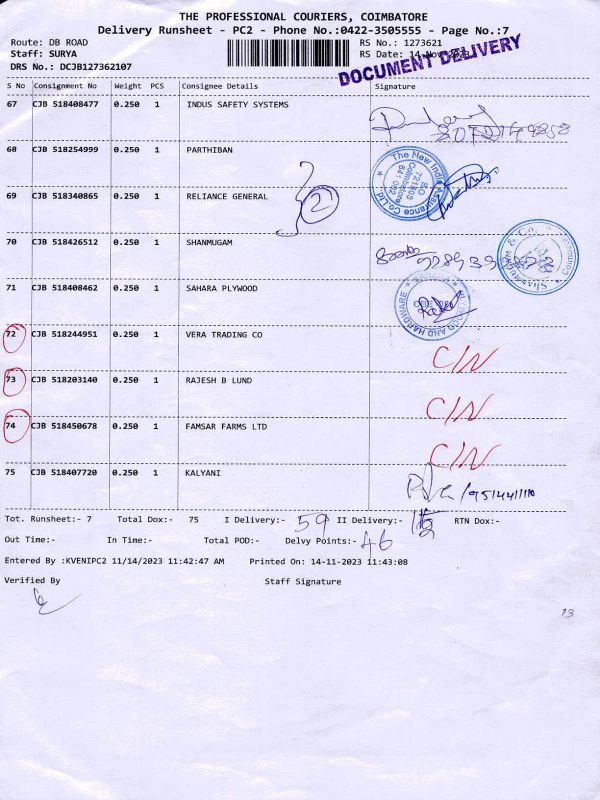 THE PROFESSIONAL COURIERS, COIMBATORE
Delivery Runsheet - PC2 - Phone No.:0422-3505555 - Page No.:7
Route: DB ROAD RS No.: 1273621
Staff: SURYA RS Date: 14-Nov-2023
DRS No.: DCJB127362107
DOCUMENT DELIVERY
S No Consignment No Weight PCS Consignee Details Signature
67 CJB 518408477 0.250 1 INDUS SAFETY SYSTEMS
68 CJB 518254999 0.250 1 PARTHIBAN
The New India Assurance Co.Ltd.
BO
721803
Coimbatore
641 002
69 CJB 518340865 0.250 1 RELIANCE GENERAL
2
70 CJB 518426512 0.250 1 SHANMUGAM
71 CJB 518408462 0.250 1 SAHARA PLYWOOD
SAHARA PLYWOOD AND HARDWARE
72 CJB 518244951 0.250 1 VERA TRADING CO C/N
73 CJB 518203140 0.250 1 RAJESH B LUND C/N
74 CJB 518450678 0.250 1 FAMSAR FARMS LTD C/N
75 CJB 518407720 0.250 1 KALYANI
Tot. Runsheet:- 7 Total Dox:- 75 I Delivery:- 59 II Delivery:- RTN Dox:-
Out Time:- In Time:- Total POD:- Delvy Points:- 46
Entered By :KVENIPC2 11/14/2023 11:42:47 AM Printed On: 14-11-2023 11:43:08
Verified By Staff Signature
13